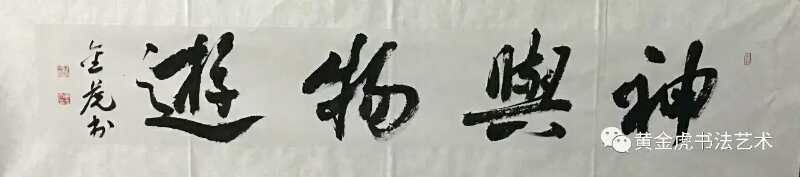 神與物遊
金虎书
黄金虎书法艺术